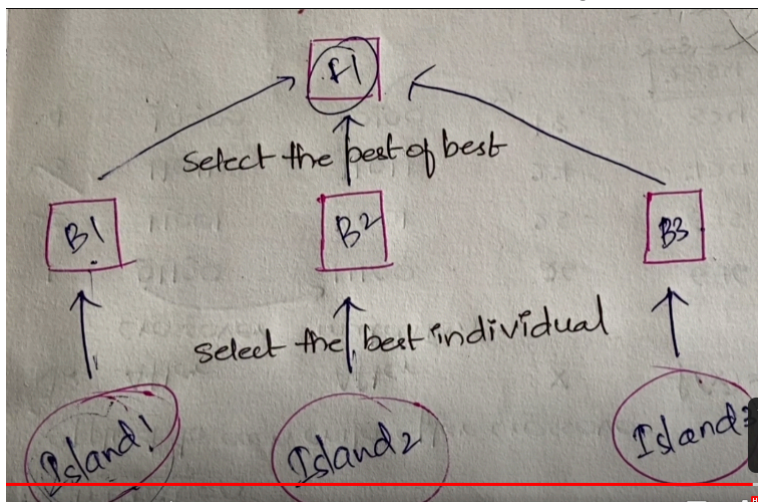 F1
Select the best of best
B1 B2 B3
Select the best individual
Island1 Island2 Island3